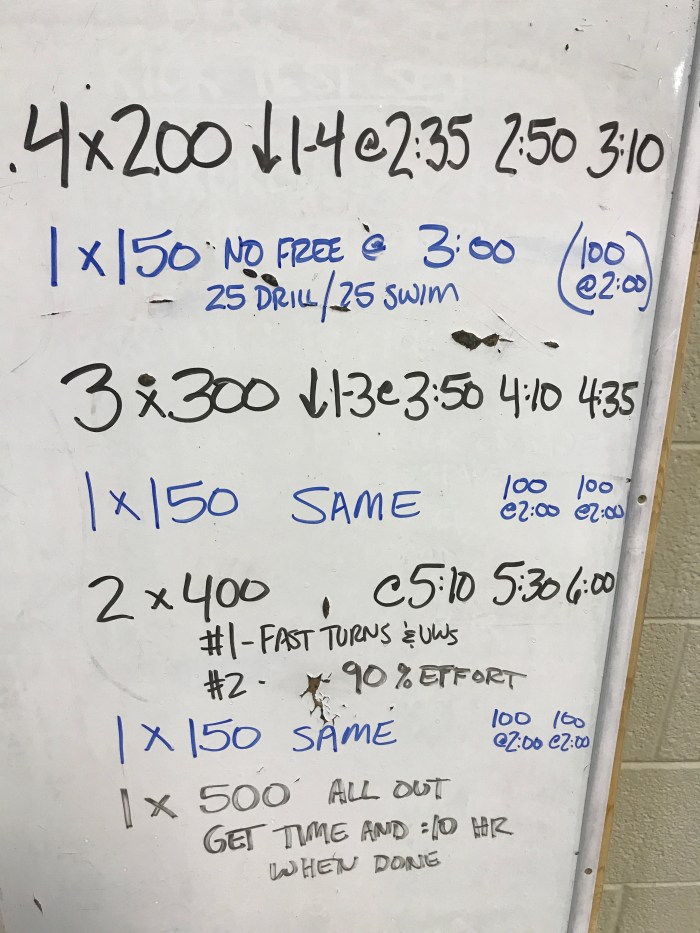 4x200 ↓1-4 @ 2:35 2:50 3:10
1x150 NO FREE @ 3:00 (100 @2:00)
25 DRILL/25 SWIM
3x300 ↓1-3 @ 3:50 4:10 4:35
1x150 SAME 100 @2:00 100 @2:00
2x400 @ 5:10 5:30 6:00
#1-FAST TURNS & UWS
#2- 90% EFFORT
1x150 SAME 100 @2:00 100 @2:00
1x 500 ALL OUT
GET TIME AND :10 HR
WHEN DONE